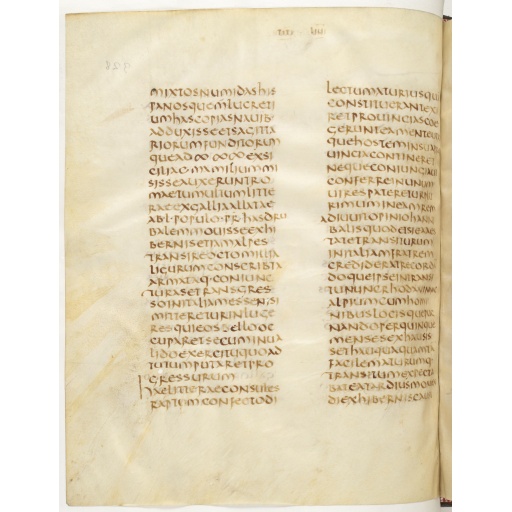 TITI LIUI
MIXTOSNUMIDASHIS
PANOSQUEMLUCRETI
UMHASCOPIASNAUIB·
ADDUXISSEETSAGITTA
RIORUMFUNDITORUM
QUEAD∞∞∞∞EXSI
CILIAC·MAMILIUMMI
SISSEAUXERUNTRO
MAETUMULTUMLITTE
RAEEXGALLIAALLATAE
ABL·POPULO·PR·HASDRU
BALEMMOUISSEEXHI
BERNISETIAMALPES
TRANSIREOCTOMILIA
LIGURUMCONSCRIBTA
ARMATAQ·CONIUNC
TURASETRANSGRES
SOINITALIAMESSENISI
MITTERETURINLIGE
RESQUIEOSBELLOOC
CUPARETSECUMINUA
LIDOEXERCITUQUOAD
TUTUMPUTARETPRO
GRESSURUM
HAELITTERAECONSULES
RAPTIMCONFECTODI
LECTUMATURIUSQU
CONSTITUERANTEXI
RETPROUINCIASCOE
GERUNTEAMENTEUT
QUEHOSTEMINSUA
UINCIACONTINERET
NEQUECONIUNGIAU
CONFERREINUNUM
UIRESPATERETUR
RIMUMINEAMREM
ADIUUITOPINIOHANNI
BALISQUODETSIEAAE
TATETRANSITURUM
INITALIAMFRATREM
CREDIDERATRECORD
DOQUEIPSEINTRANSI
TUNUNCRHODANI
ALPIUMCUMHOMI
NIBUSLOCISQUEPUG
NANDOPERQUINQUE
MENSESEXHAUSIS
SETHAUQUAQUAMTA
FACILEMATURUMQ·
TRANSITUMEXPECTA
BATEATARDIUSMOUEN
DIEXHIBERNISCAUS